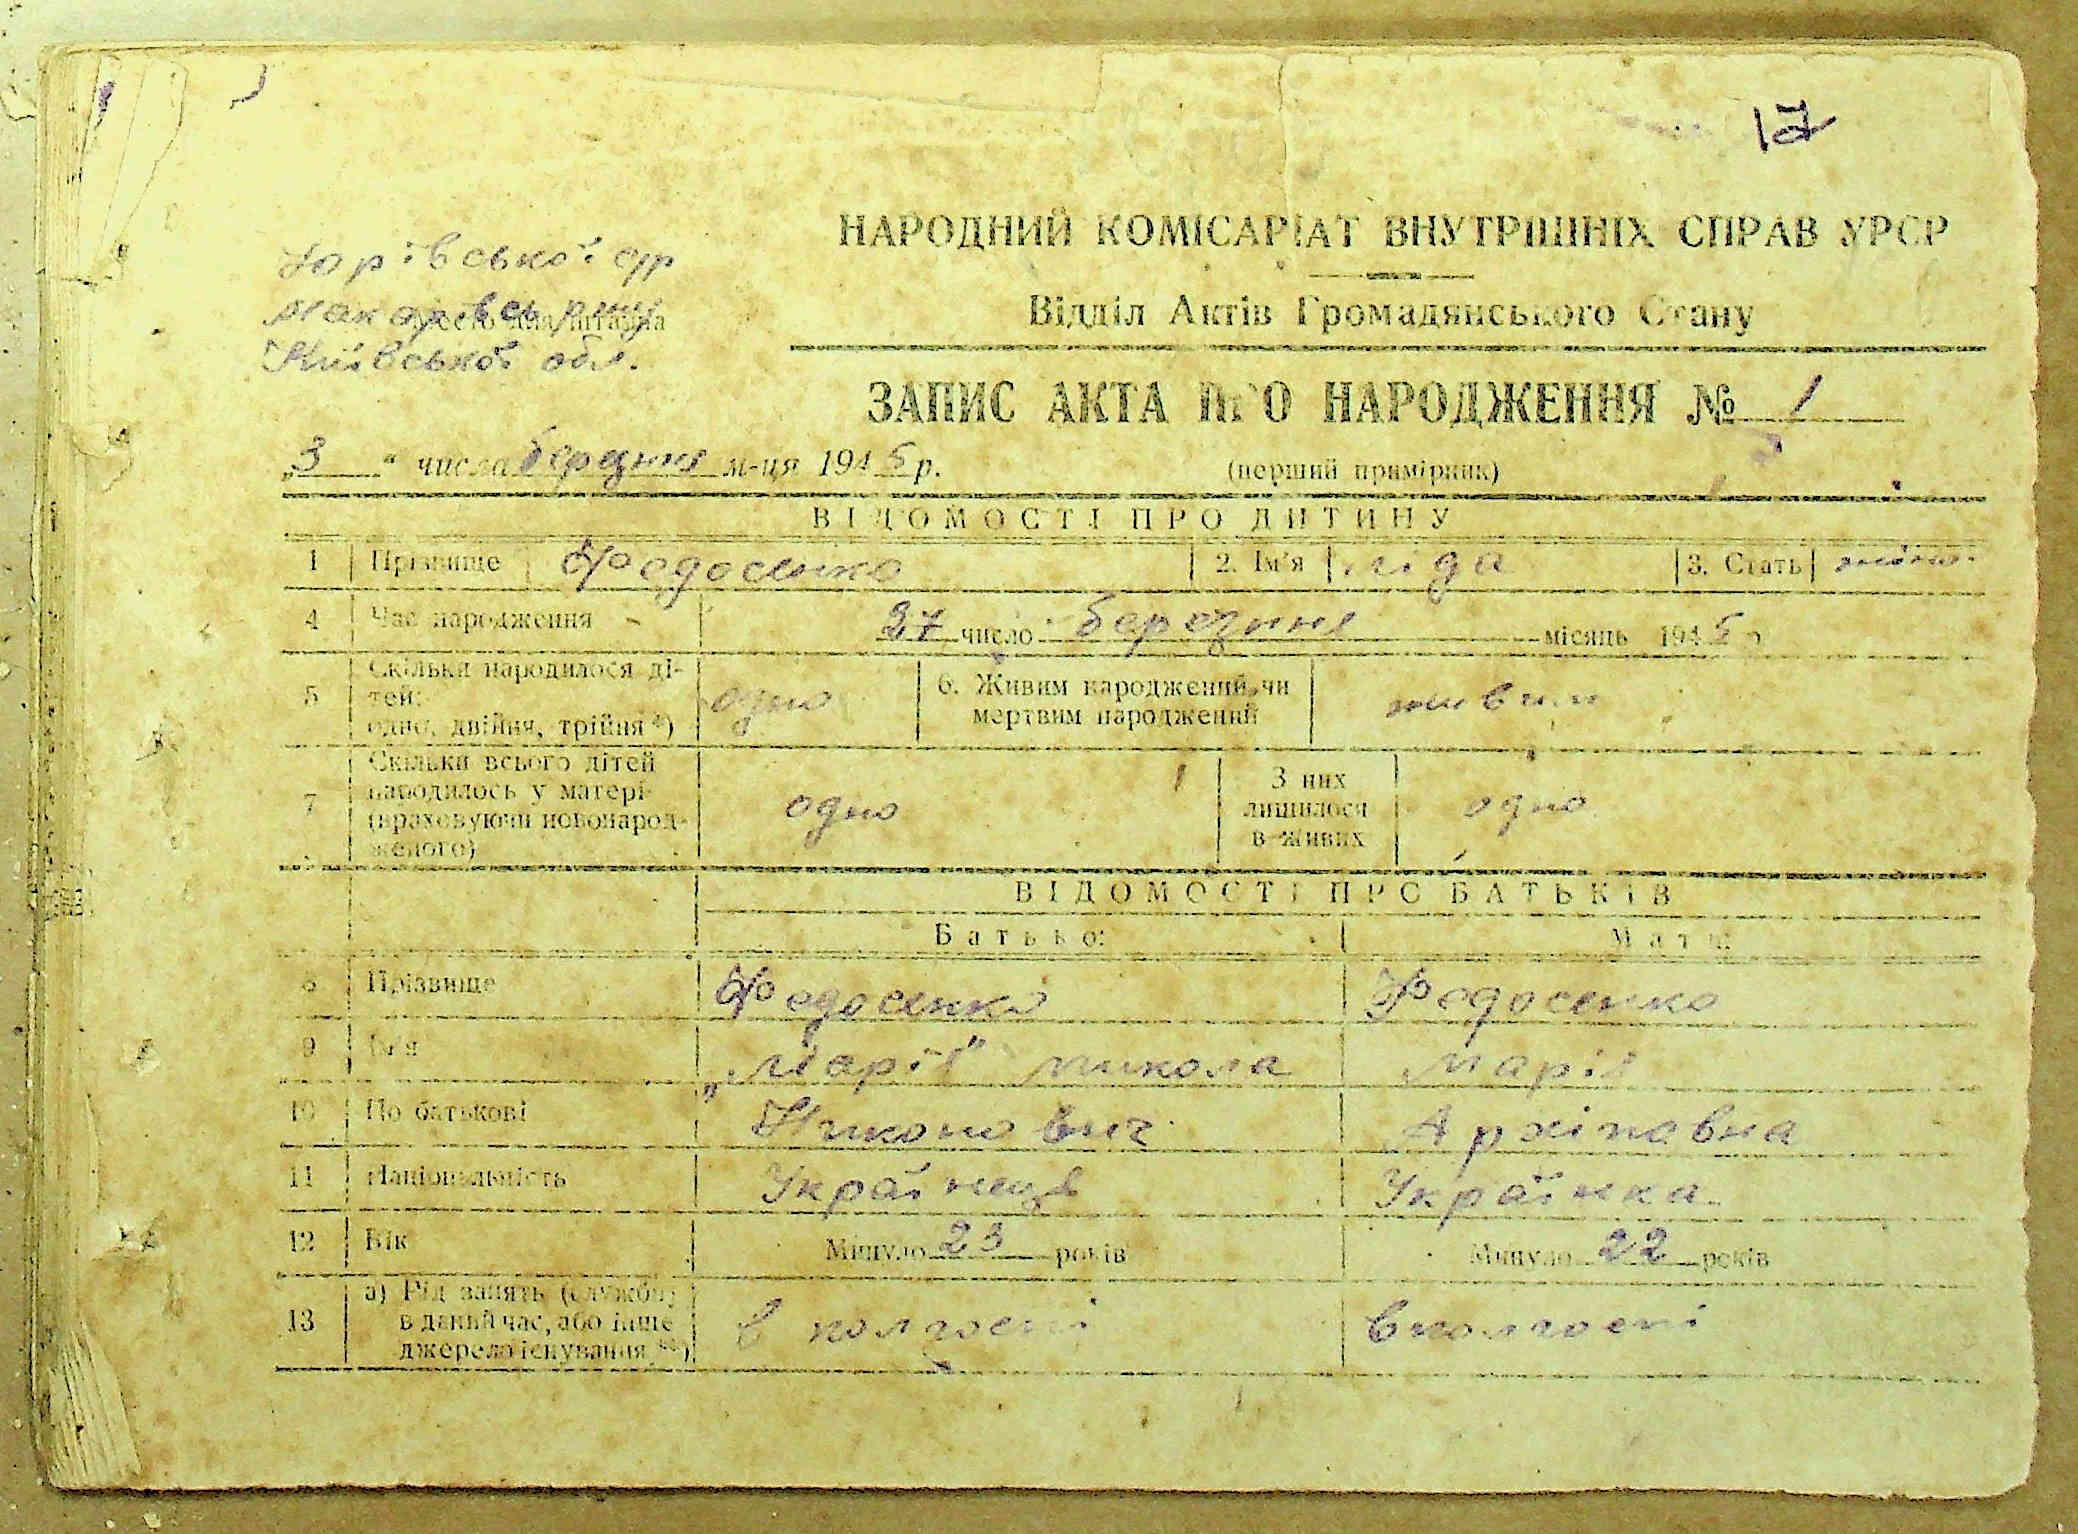 17
НАРОДНИЙ КОМІСАРІАТ ВНУТРІШНІХ СПРАВ УРСР
Відділ Актів Громадянського Стану
Юрівської с/р
Макарівсь р-ну
Місце для штампа
Київської обл.
ЗАПИС АКТА ПРО НАРОДЖЕННЯ № 1
„3“ числа березня м-ця 1945 р. (перший примірник)
ВІДОМОСТІ ПРО ДИТИНУ
1 Прізвище Федосенко 2. Ім'я Ліда 3. Стать жіно.
4 Час народження 27 число березння місяць 1945 р
5 Скільки народилося дітей: одно, двійня, трійня *) одно 6. Живим народжений чи мертвим народжений живим
7 Скільки всього дітей народилось у матері (враховуючи новонародженого) одно З них лишилося в живих одно
ВІДОМОСТІ ПРО БАТЬКІВ
Батько: Мати:
8 Прізвище Федосенко Федосенко
9 Ім'я „Марія" Микола Марія
10 По батькові Никонович Архіповна
11 Національність Українець Українка
12 Вік Минуло 23 років Минуло 22 років
13 а) Рід занять (службу в даний час, або інше джерело існування **) в колгоспі в колгоспі